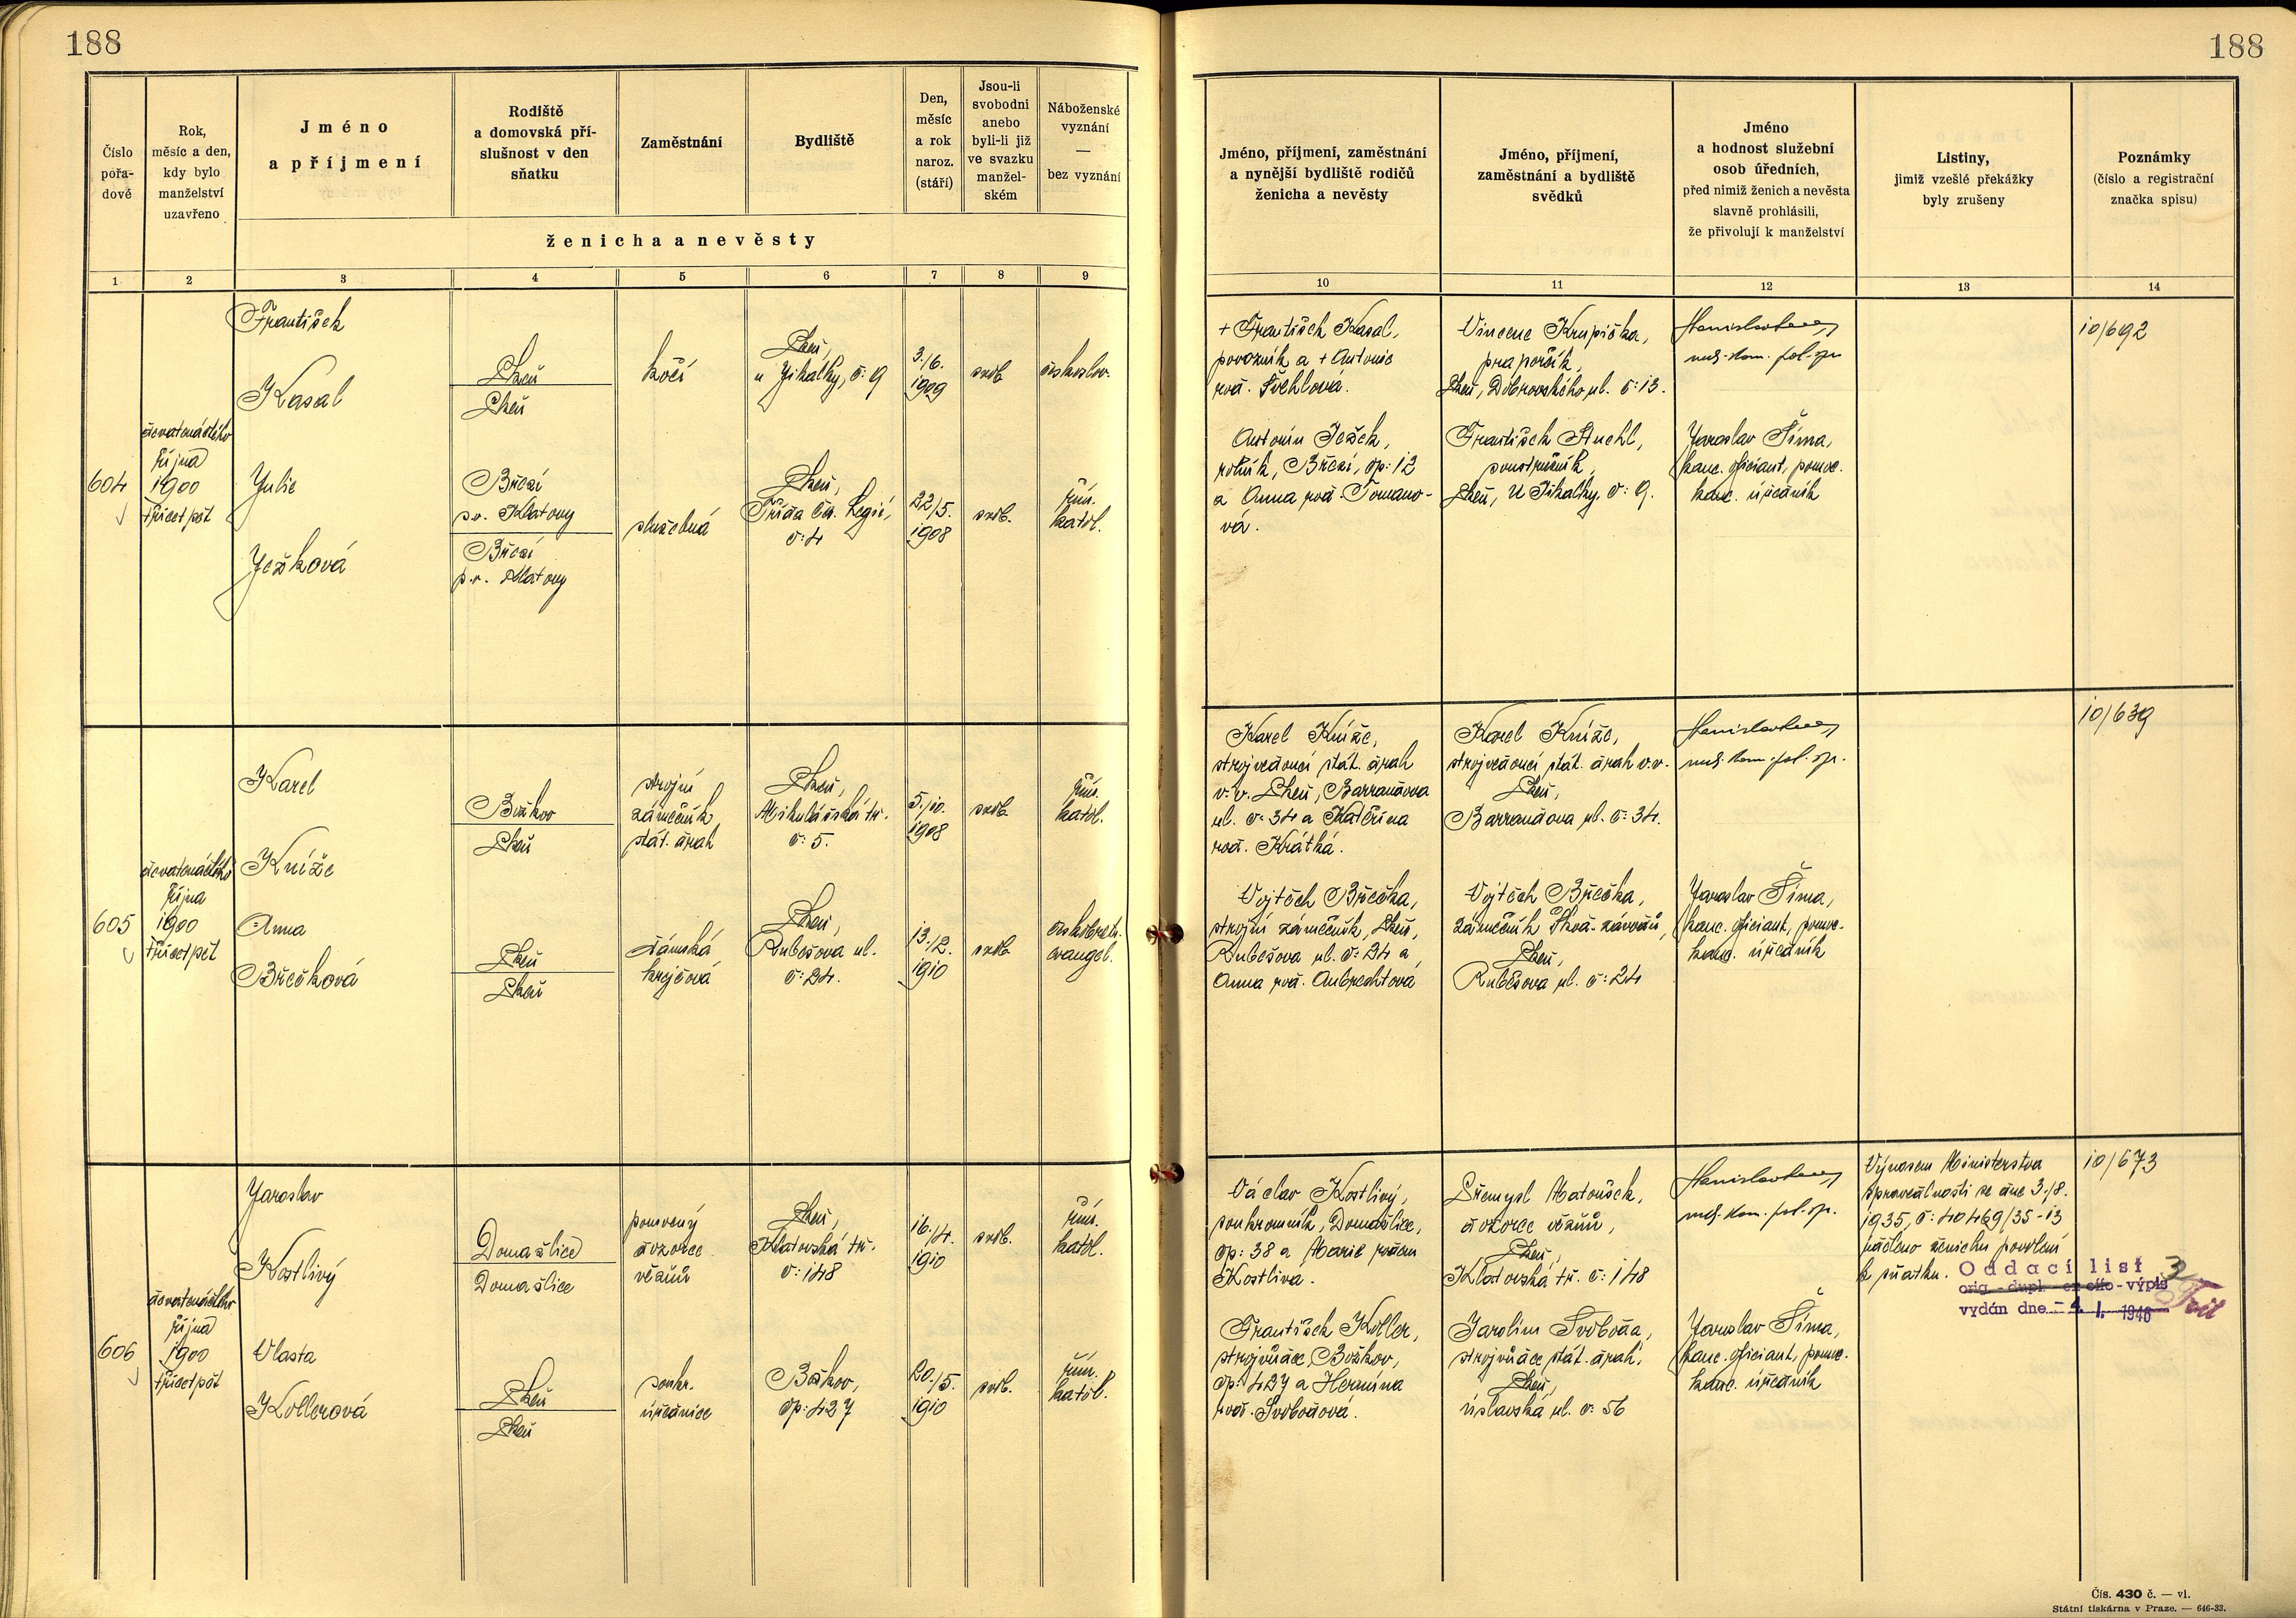 188
188
Číslo
pořa-
dové
Rok,
měsíc a den,
kdy bylo
manželství
uzavřeno
Jméno
a příjmení
Rodiště
a domovská pří-
slušnost v den
sňatku
Zaměstnání
Bydliště
Den,
měsíc
a rok
naroz.
(stáří)
Jsou-li
svobodni
anebo
byli-li již
ve svazku
manžel-
ském
Náboženské
vyznání
—
bez vyznání
ženicha a nevěsty
Jméno, příjmení, zaměstnání
a nynější bydliště rodičů
ženicha a nevěsty
Jméno, příjmení,
zaměstnání a bydliště
svědků
Jméno
a hodnost služební
osob úředních,
před nimiž ženich a nevěsta
slavně prohlásili,
že přivolují k manželství
Listiny,
jimiž vzešlé překážky
byly zrušeny
Poznámky
(číslo a registrační
značka spisu)
1 2 3 4 5 6 7 8 9 10 11 12 13 14
604
devatenáctého
října
1900
třicet pět
František
Kasal
Plzeň
Plzeň
kočí
Plzeň,
u Jikalky, č: 9
3./6.
1909
svob.
českoslov.
Julie
Ježková
Břězí
p.v. Klatovy
Břězí
p.v. Klatovy
služebná
Plzeň,
Třída čs. Legií,
č: 4
22/5.
1908
svob.
řím.
katol.
+ František Kasal,
povozník a + Antonie
roz. Švehlová.
Antonín Ježek,
rolník, Břězí, čp: 12
a Anna roz. Tomano-
vá.
Vincenc Krupička,
praporčík,
Plzeň, Dobrovského ul. č: 13.
František Stuchl,
soustružník,
Plzeň, U Jikalky, č: 9.
rad. kom. pol. spr.
Jaroslav Šíma,
kanc. oficiant, pomoc.
kanc. úředník
10/692
605
devatenáctého
října
1900
třicet pět
Karel
Kníže
Božkov
Plzeň
strojní
zámečník
stát. drah
Plzeň,
Mikulášská tř.
č: 5.
5./10.
1908
svob.
řím.
katol.
Anna
Břečková
Plzeň
Plzeň
dámská
krejčová
Plzeň,
Rubešova ul.
č: 24.
13./2.
1910
svob.
českobratr.
evangel.
Karel Kníže,
strojvedoucí stát. drah
v.v. Plzeň, Barrandova
ul. č: 34 a Kateřina
roz. Krátká.
Vojtěch Břečka,
strojní zámečník, Plzeň,
Rubešova ul. č: 24 a
Anna roz. Aubrechtová
Karel Kníže,
strojvedoucí stát. drah v.v.
Plzeň,
Barrandova ul. č: 34.
Vojtěch Břečka,
zámečník Škod. závodů,
Plzeň,
Rubešova ul. č: 24
rad. kom. pol. spr.
Jaroslav Šíma,
kanc. oficiant, pomoc.
kanc. úředník
10/639
606
devatenáctého
října
1900
třicet pět
Jaroslav
Kostlivý
Domažlice
Domažlice
pomocný
dozorce
vězňů
Plzeň,
Klatovská tř.
č: 148
16./4.
1910
svob.
řím.
katol.
Vlasta
Kollerová
Plzeň
Plzeň
soukr.
úřednice
Božkov,
čp: 427
20./5.
1910
svob.
řím.
katol.
Václav Kostlivý,
soukromník, Domažlice,
čp: 38 a Marie rozem
Kostlivá.
František Koller,
strojvůdce, Božkov,
čp: 427 a Hermína
roz. Svobodová.
Přemysl Matoušek,
dozorce vězňů,
Plzeň,
Klatovská tř. č: 148
Jarolím Svoboda,
strojvůdce stát. drah,
Plzeň,
úslavská ul. č: 56
rad. kom. pol. spr.
Jaroslav Šíma,
kanc. oficiant, pomoc.
kanc. úředník
Výnosem Ministerstva
spravedlnosti ze dne 3./8.
1935, č: 40469/35-13
uděleno ženichu povolení
k sňatku.
Oddací list
výpis
vydán dne - 4. I. 1946
10/673
Čís. 430 č. — vl.
Státní tiskárna v Praze. — 646-33.